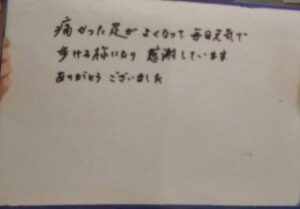 痛かった足がよくなって毎日元気で
歩ける様になり感謝しています
ありがとうございました